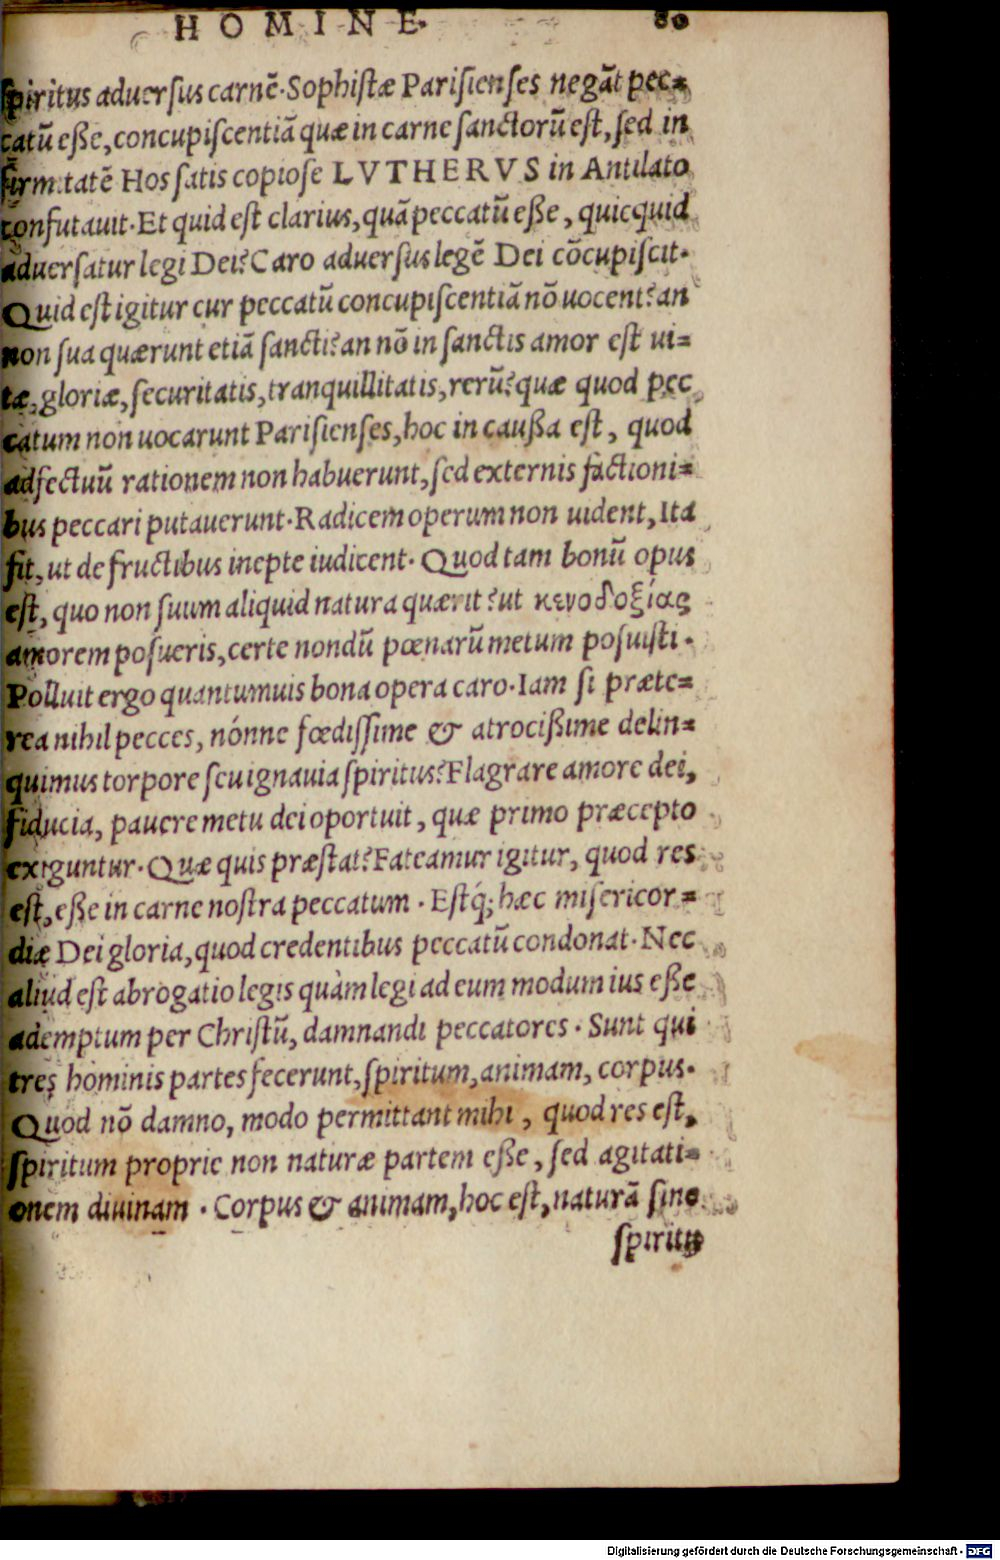 HOMINE. 80
ſpiritus aduerſus carnē. Sophiſtæ Pariſienſes negāt pec=
catū eſſe, concupiſcentiā quæ in carne ſanctorū eſt, ſed in
firmitatē Hos ſatis copioſe LVTHERVS in Antilato
confutauit. Et quid eſt clarius, quā peccatū eſſe, quicquid
aduerſatur legi Dei? Caro aduerſus legē Dei cōcupiſcit.
Quid eſt igitur cur peccatū concupiſcentiā nō uocent? an
non ſua quærunt etiā ſancti? an nō in ſanctis amor eſt ui=
tæ, gloriæ, ſecuritatis, tranquillitatis, rerū? quæ quod pec
catum non uocarunt Pariſienſes, hoc in cauſſa eſt, quod
adfectuū rationem non habuerunt, ſed externis factioni=
bus peccari putauerunt. Radicem operum non uident, Ita
fit, ut de fructibus inepte iudicent. Quod tam bonū opus
eſt, quo non ſuum aliquid natura quærit? ut κενοδοξίας
amorem poſueris, certe nondū pœnarū metum poſuiſti.
Polluit ergo quantumuis bona opera caro. Iam ſi præte=
rea nihil pecces, nónne fœdiſſime & atrociſſime delin=
quimus torpore ſeu ignauia ſpiritus? Flagrare amore dei,
fiducia, pauere metu dei oportuit, quæ primo præcepto
exiguntur. Quæ quis præſtat? Fateamur igitur, quod res
eſt, eſſe in carne noſtra peccatum. Eſtq́; hæc miſericor=
diæ Dei gloria, quod credentibus peccatū condonat. Nec
aliud eſt abrogatio legis quàm legi ad eum modum ius eſſe
ademptum per Chriſtū, damnandi peccatores. Sunt qui
tres hominis partes fecerunt, ſpiritum, animam, corpus.
Quod nō damno, modo permittant mihi, quod res eſt,
ſpiritum proprie non naturæ partem eſſe, ſed agitati=
onem diuinam. Corpus & animam, hoc eſt, naturā ſine
ſpiritu
Digitalisierung gefördert durch die Deutsche Forschungsgemeinschaft - DFG